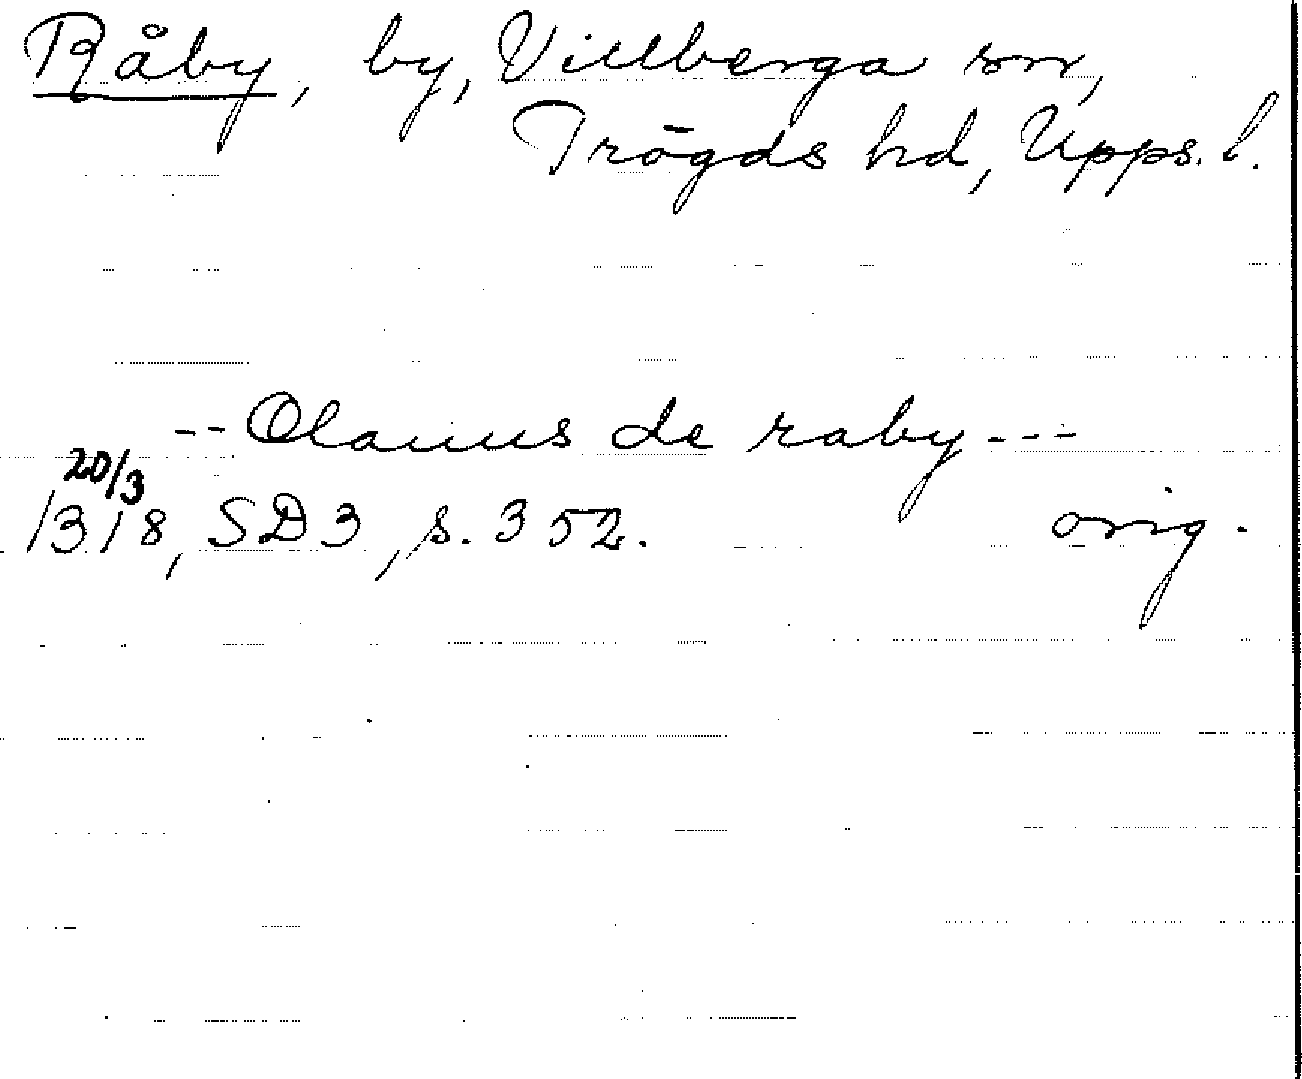 Råby, by, Villberga sn,
Trögds hd, Upps. l.
-- Olauus de raby ---
20/3
1318, SD3, s. 352. orig.